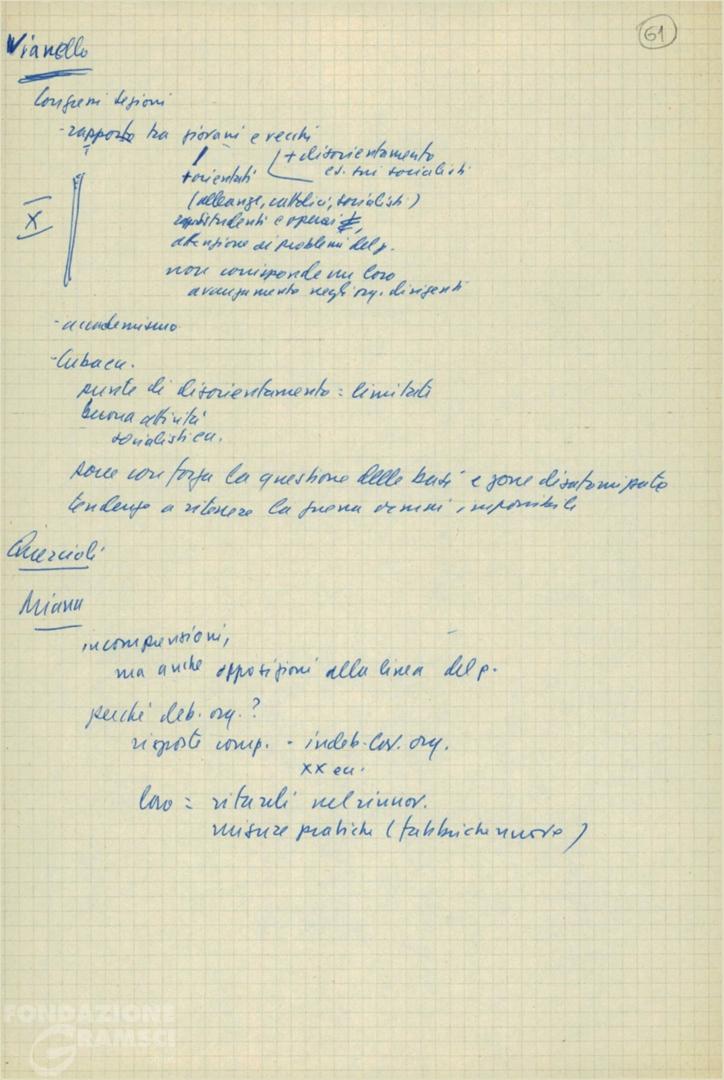 61
Vianello
Congressi sezioni
- rapporto tra giovani e vecchi
+ disorientamento
+ orientati es. sui socialisti
(alleanze, cattolici, socialisti)
studenti e operai
X
attenzione ai problemi del p.
non corrisponde un loro
avanzamento negli org. dirigenti
- accademismo
-
punte di disorientamento = limitate
buona attività
socialistica.
pone con forza la questione delle basi e zone disatomizzate
tendenze a ritenere la guerra ormai impossibile
Quercioli
Miana
incomprensioni,
ma anche opposizioni alla linea del p.
perché deb. org.?
risposte comp. - indeb. lav. org.
XX ecc.
loro = ritardi nel rinnov.
misure pratiche (fabbriche nuove)
FONDAZIONE
GRAMSCI